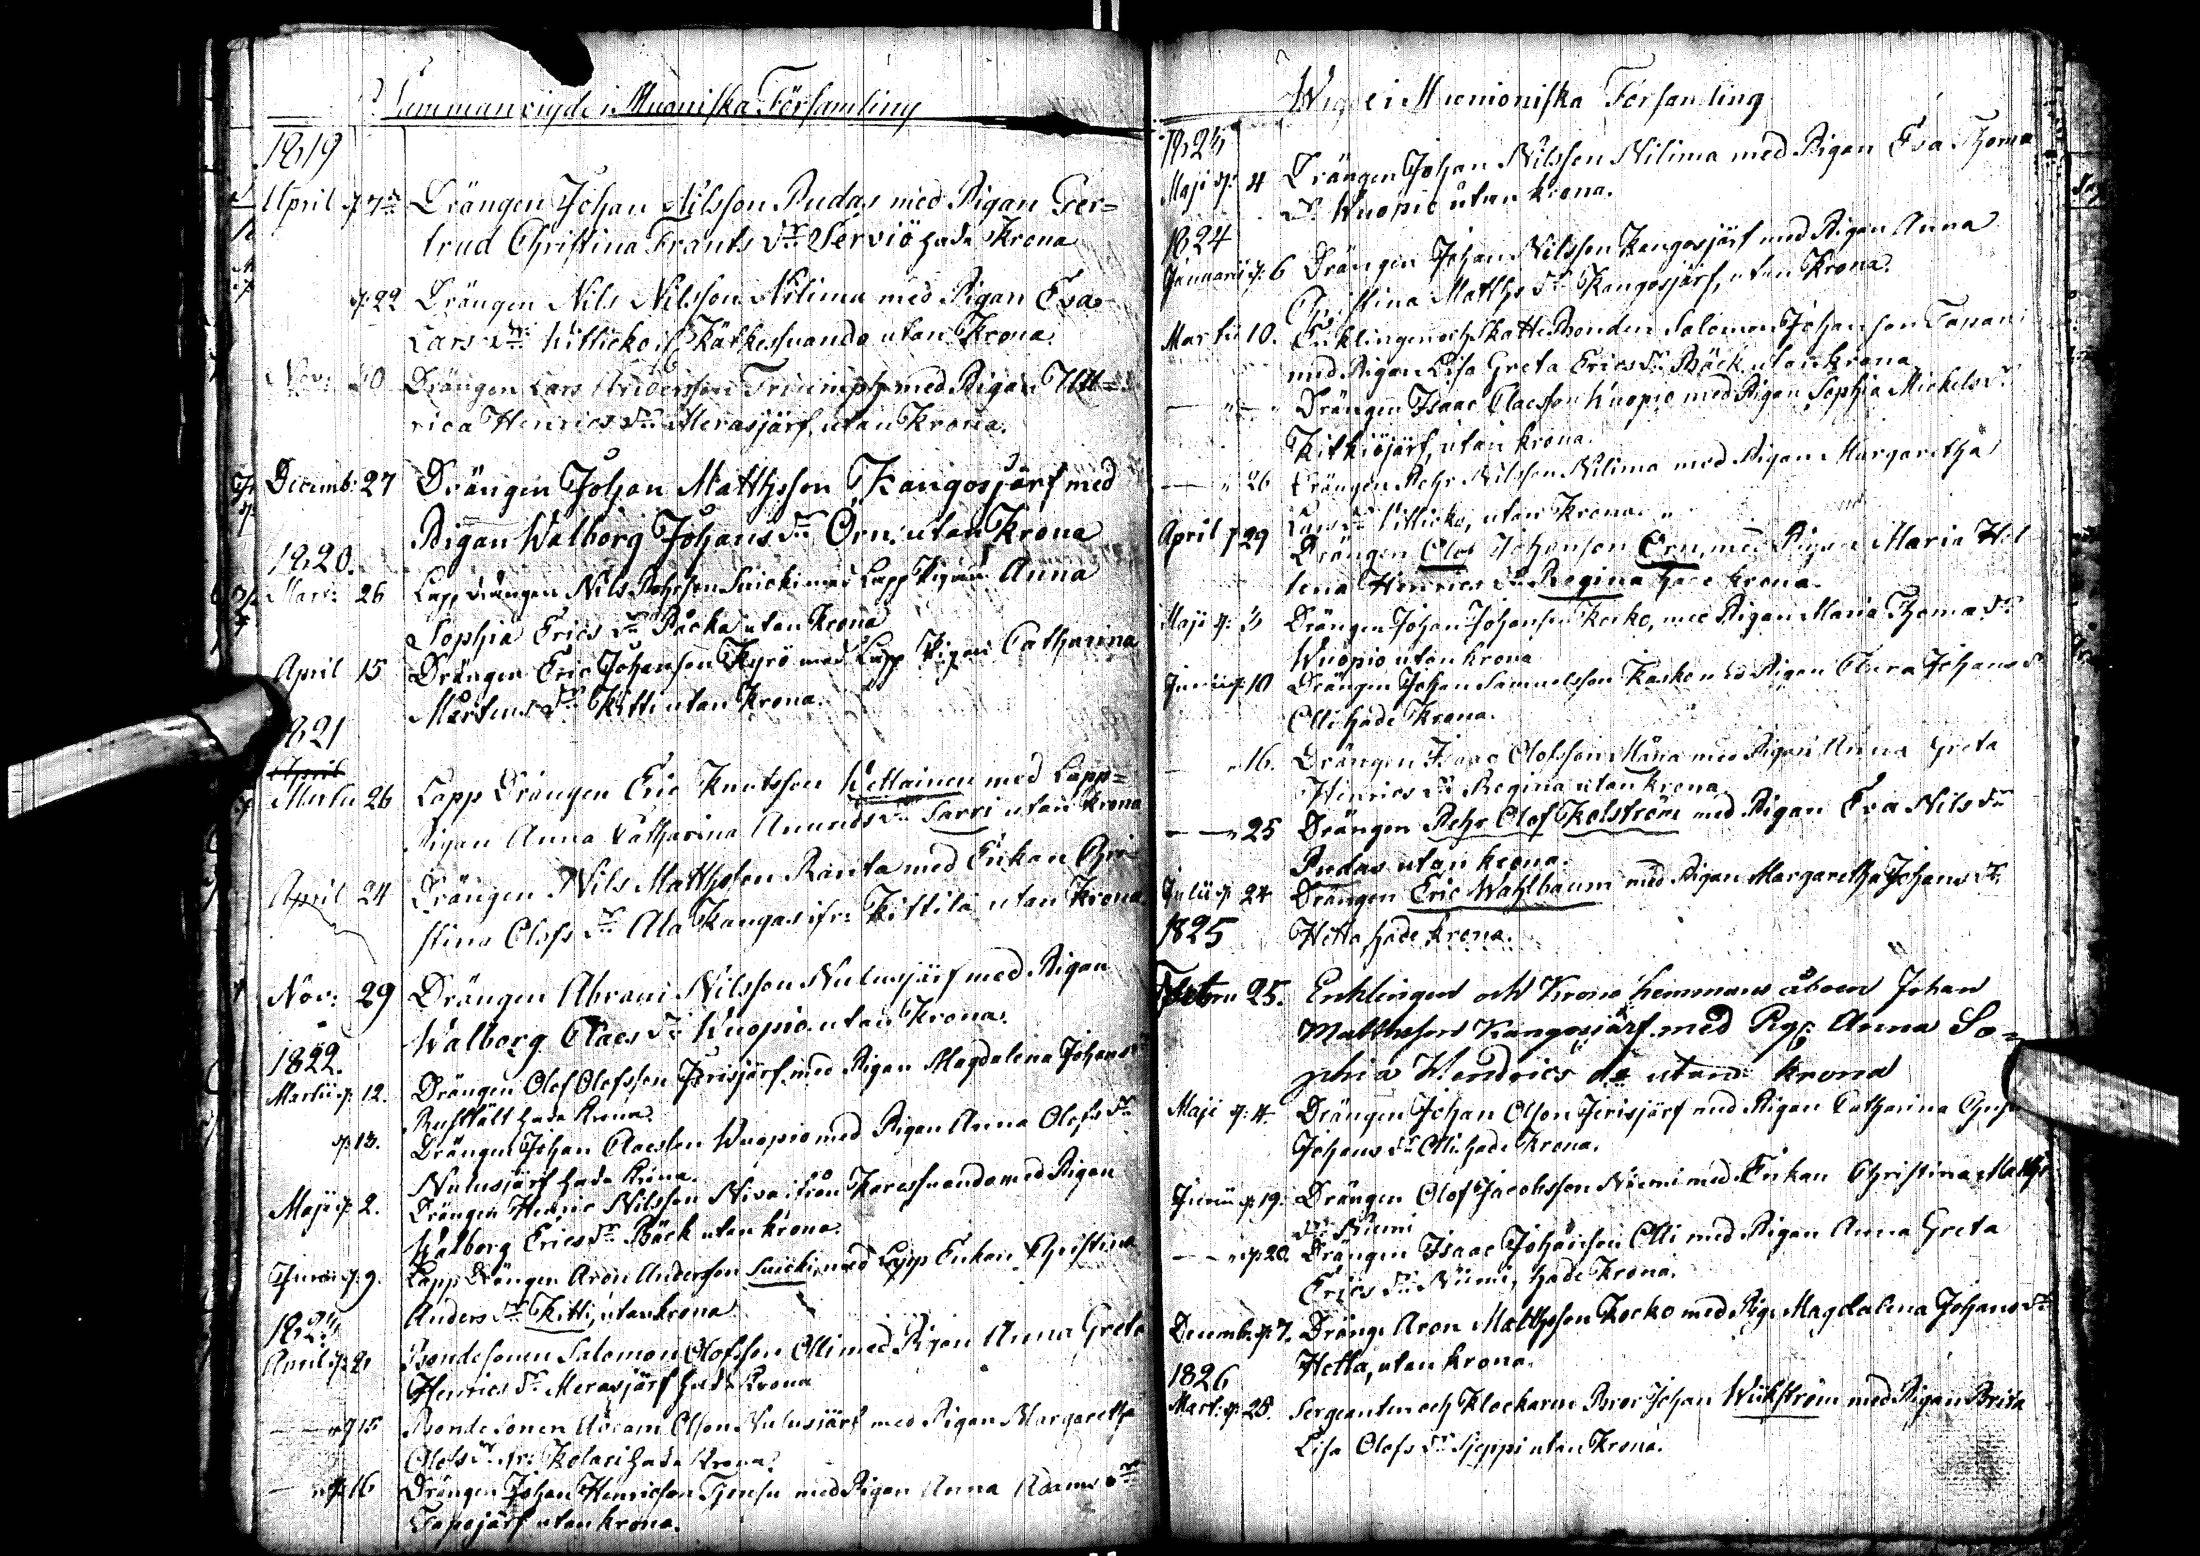 Sammanvigde i Muoniska Församling
1819
April d. 7de Drängen Johan Nilsson Rudas med Pigan Ger=
trud Christina Frants dr Serviö hade Krona
d. 22 Drängen Nils Nilsson Nilima med Pigan Eva
Lars dr Kittioko if. Kätkesuando utan Krona
Nov: 30 Drängen Lars Andersson Triumph med Pigan Ull=
rica Henrics dr Merasjärf, utan Krona.
Decemb: 27 Drängen Johan Matthsson Kangosjärf med
Pigan Walborg Johans dr Örn utan Krona
1820.
Mars 26 Lapp drängen Nils Pehrsson Suicki med Lapp Pigan Anna
Sophia Erics dr Päcka utan Krona
April 15 Drängen Eric Johansson Kyrö med Lapp Pigan Catharina
Mårtens dr Kitti utan Krona.
1821
April
Martii 26 Lapp Drängen Eric Knutsson Wettainen med Lapp=
Pigan Anna Catharina Amunds dr Sarri utan Krona
April 24 Drängen Nils Matthsson Ranta med Enkan Chri=
stina Olofs dr Ala Kangas ifr: Kittilä utan Krona
Nov: 29 Drängen Abram Nilsson Nulusjärf med Pigan
Walborg Claes dr Kuopio utan Krona.
1822.
Martii d. 12. Drängen Olof Olofsson Jerisjärf med Pigan Magdalena Johans dr
Rustfält hade Krona.
d. 13. Drängen Johan Claesson Kuopio med Pigan Anna Olofs dr
Nulusjärf hade Krona.
Maji d. 2. Drängen Henric Nilsson Niva ifrån Karesuando med Pigan
Walborg Erics dr Bäck utan krona.
Junii d. 9. Lapp Drängen Aron Andersson Suicki, med Lapp Enkan Christina
Anders dr Kitti, utan krona
1823
April d. 2 Bondesonen Salomon Olofsson Olli med Pigan Anna Greta
Henrics dr Merasjärf hade Krona
d 15 Bonde Sonen Abram Olson Nulusjärf med Pigan Margaretha
Olofs dr ifr: Kolari hade Krona.
d. 16 Drängen Johan Henricson med Pigan Anna Adams dr
Tapojärf utan krona.
Wigde i Muonioniska Församling
1823
Maji d. 4 Drängen Johan Nilsson Nilima med Pigan Eva Thoma
dr Kuopio utan krona.
1824
Januarii d. 6 Drängen Johan Nilsson Kangosjärf med Pigan Anna
Christina Matths dr Kangosjärf, utan Krona.
Martii 10. Enklingen och Skatte Bonden Salomon Johansson Tapani
med Pigan Lisa Greta Erics dr Bäck utan krona
— " — " Drängen Isaac Claesson Kuopio med Pigan Sophia Mickels dr
Kitkiöjärf, utan krona.
— " 26 Drängen Pehr Nilsson Nilima med Pigan Margaretha
Lars dr Kittioko, utan Krona.
April d 29 Drängen Olof Johansson Örn, med Pigan Maria He
lena Henrics dr Regina hade krona.
Maji d. 3 Drängen Johan Johansson Kesko, med Pigan Maria Thoma dr
Kuopio utan krona
Junii d. 10 Drängen Johan Samuelsson Kasko med Pigan Clara Johans dr
Olli hade Krona.
— " 16. Drängen Isaac Olofsson Måna med Pigan Anna Greta
Henrics dr Regina utan krona
— " 25 Drängen Pehr Olof Kolström med Pigan Eva Nils dr
Rudas utan krona.
Julii d. 24 Drängen Eric Wahlbaum med Pigan Margaretha Johans dr
1825 Hetta, hade krona.
Febru 25. Enklingen och Krono hemmans åboen Johan
Matthsson Kangosjärf med Pig: Anna So=
phia Hendrics dr utan krona
Maji d. 4. Drängen Johan Olson Jerisjärf med Pigan Catharina
Johans dr Olli hade Krona.
Junii d. 19. Drängen Olof Jacobsson Niemi med Enkan Christina Matths
dr Niemi
— " d. 20. Drängen Isaac Johansson Olli med Pigan Anna Greta
Erics dr Niemi, hade Krona.
Decemb. d. 7. Dräng: Aron Matthsson Kocko med Pig: Magdalena Johans dr
Hetta, utan krona.
1826
Mart: d. 25. Sergeanten och Klockaren Bror Johan Wickström med Pigan Brita
Lisa Olofs dr Sjeppi utan Krona.